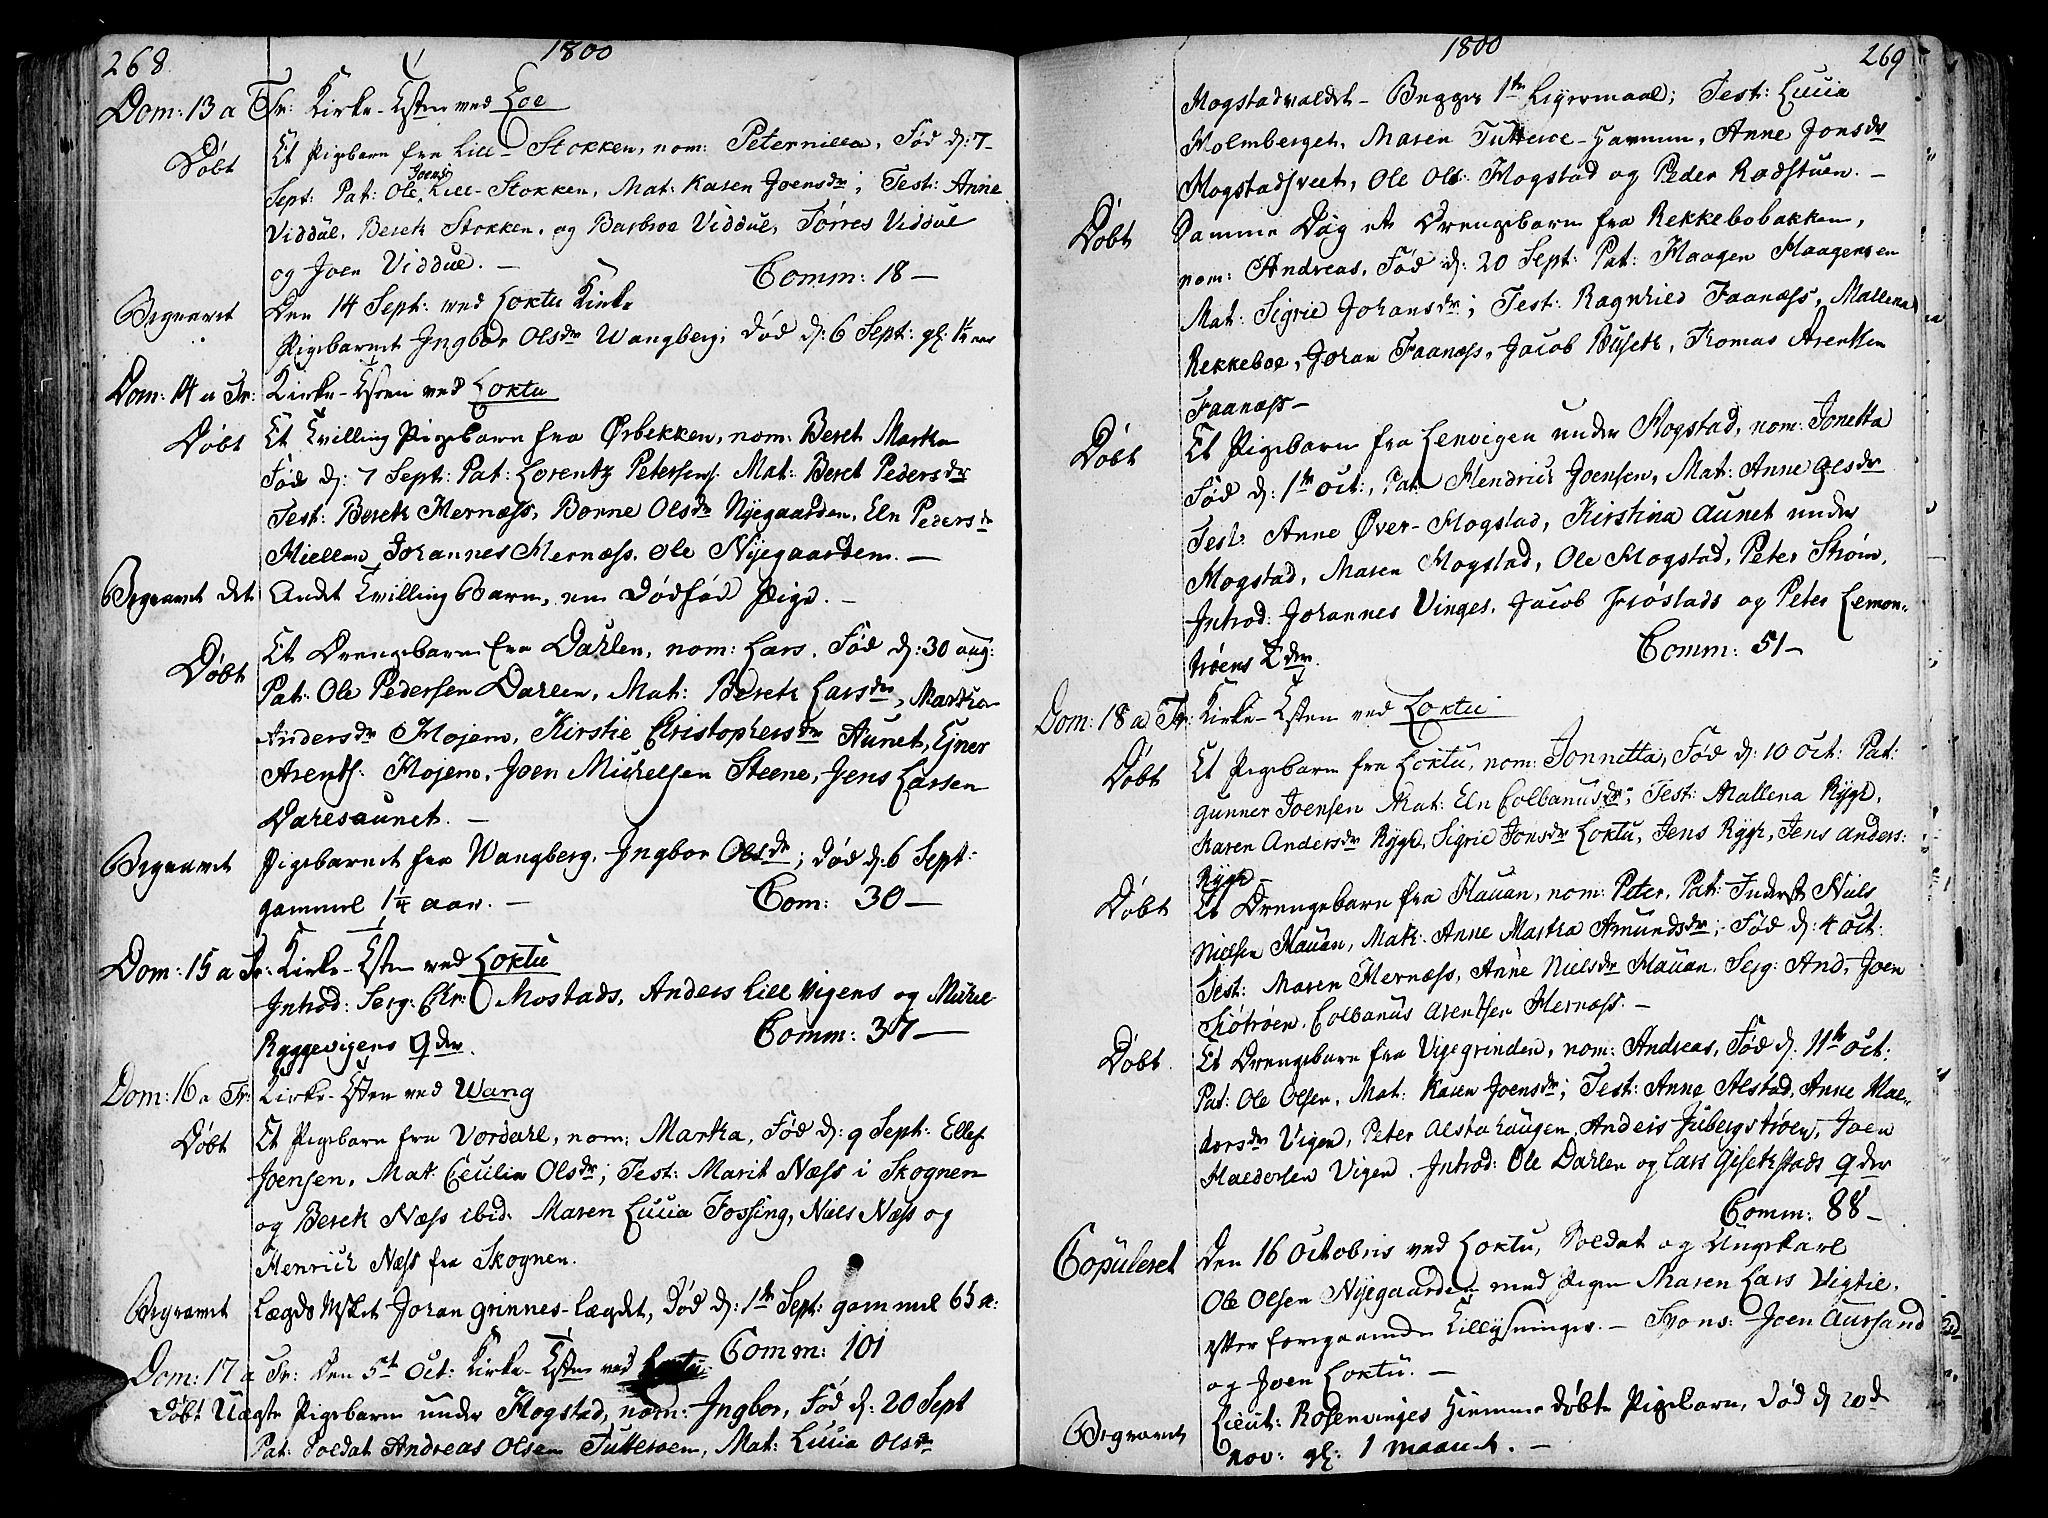 268. 1800
Dom: 13 a Tr: Kirke-Tsten ved Loe
Døbt Et Pigebarn fra Lill-Stokken, nom: Peternilla, Fød d: 7
Sept: Pat: Ole Joens. Lill-Stokken, Mat: Karen Joensdr; Test: Anne
Viddül, Beret Stokken, og Barbroe Viddül, Tørres Viddül
og Joen Viddül. — Comm: 18 —
Begravet Den 14 Sept: ved Loktu Kirke
Pigebarnet Ingbor Olsdr Wangberg; død d: 6 Sept: gl: 1¼ aar
Dom: 14 a Tr: Kirke-Tsten ved Loktu
Døbt Et Tvilling Pigebarn fra Ørbekken, nom: Beret Marka
Fød d: 7 Sept: Pat: Lorentz Petersens Mat: Beret Pedersdr
Test: Beret Hernæss, Borne Olsdr Nyegaarden, Eln Pedersdr
Miellem Johannes Hernæss, Ole Nyegaarden. —
Begravet det Andet Tvilling Barn, en Dødfød Pige. —
Døbt Et Drengebarn fra Dahlen, nom: Lars, Fød d: 30 aug:
Pat: Ole Pedersen Dahlen, Mat: Beret Larsdr, Marka
Andersdr Mojem, Kirstie Christophersdr Aunet, Ejner
Arents: Mojem, Joen Michelsen Steene, Jens Larsen
Daresaunet. —
Begravet Pigebarnet fra Wangberg, Ingbor Olsdr; død d: 6 Sept:
gammel 1¼ aar. — Com: 30 —
Dom: 15 a Tr: Kirke-Tsten ved Loktu
Introd: Serg: Chr: Mostads, Anders Lill Vigens og Michel
Ryggevigens Qder. Comm: 37 —
Dom: 16 a Tr: Kirke-Tsten ved Wang
Døbt Et Pigebarn fra Vordahl, nom: Marka, Fød d: 9 Sept: Ellef
Joensen, Mat Cecilia Olsdr; Test: Marit Næss i Skognen
og Beret Næss ibid. Maren Lucia Fossing, Niels Næss og
Henrich Næss fra Skognen.
Begravet Lægds Msket Johan Grinnes-Lægdet, Død d: 1te Sept: gammel 65 a:
Comm: 101
Dom: 17 a Tr: Den 5te Oct: Kirke-Tsten ved Loktu
Døbt Uægte Pigebarn under Mogstad, nom: Ingbor, Fød d: 20 Sept
Pat: Soldat Andreas Olsen Tutteroen, Mat: Lucia Olsdr
1800 269
Mogstadvaldet — Begges 1te Leyermaal; Test: Lucia
Holmberget, Maren Tutteroe-Havnen, Anne Jonsdr
Mogstadsveet, Ole Ols: Mogstad og Peder Rødstuen. —
Døbt Samme Dag et Drengebarn fra Rekkebobakken,
nom: Andreas, Fød d: 20 Sept: Pat: Haagen Haagensen
Mat: Sigrie Johansdr; Test: Ragnhild Faanæss, Mallena
Rekkeboe, Johan Faanæss, Jacob Buseth, Thomas Arentsen
Faanæss —
Døbt Et Pigebarn fra Lervigen under Mogstad, nom: Jonetta
Fød d: 1te Oct:, Pat: Hendrich Joensen, Mat: Anne Olsdr
Test: Anne Øver-Mogstad, Kirstina Aunet under
Mogstad, Maren Mogstad, Ole Mogstad, Peter Strøm,
Introd: Johannes Vinges, Jacob Frøstads og Peter Lemon-
trøens Qder. Comm: 51 —
Dom: 18 a Tr: Kirke-Tsten ved Loktu
Døbt Et Pigebarn fra Loktu, nom: Jonnetta, Fød d: 10 Oct: Pat:
Gunner Joensen Mat: Eln Colbanusdr; Test: Mallena Rygh,
Karen Andersdr Rygh, Sigrie Jonsdr Loktu, Jens Rygh, Jens Anders:
Rygh —
Døbt Et Drengebarn fra Hauan, nom: Peter, Pat: Inderst Niels
Nielsen Hauan, Mat: Anne Marka Amundsdr; Fød d: 4 Oct:
Test: Maren Hernæss, Anne Nielsdr Hauan, Serg: And. Joen
Siøtrøen, Colbanus Arentsen Hernæss. —
Døbt Et Drengebarn fra Vigegrinden, nom: Andreas, Fød d: 11te Oct:
Pat: Ole Olsen, Mat: Karen Joensdr; Test: Anne Alstad, Anne Hal-
dorsdr Vigen, Peter Alstahaugen, Anders Jubergstrøen, Joen
Haldorsen Vigen. Introd: Ole Dahlen og Lars Gisetstads Qder
Comm: 88 —
Copuleret Den 16 Octobris ved Loktu, Soldat og Ungkarl
Ole Olsen Nyegaarden med Pigen Maren Lars Vigtil,
efter foregaaende Tillysninger. — Spons: Joen Aursand
og Joen Loktu. —
Begravet Lieut: Rosenvinges Hiemme døbte Pigebarn, død d 20d
Nov: gl: 1 maanet. —